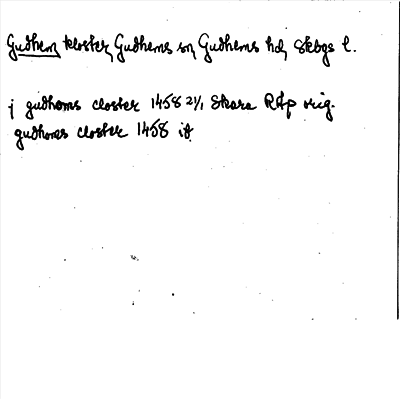 Gudhem, kloster, Gudhems sn, Gudhems hd, Skbgs l.
j gudhems closter 1458 2/1 Skara RAp orig.
gudhems closter 1458 ib.